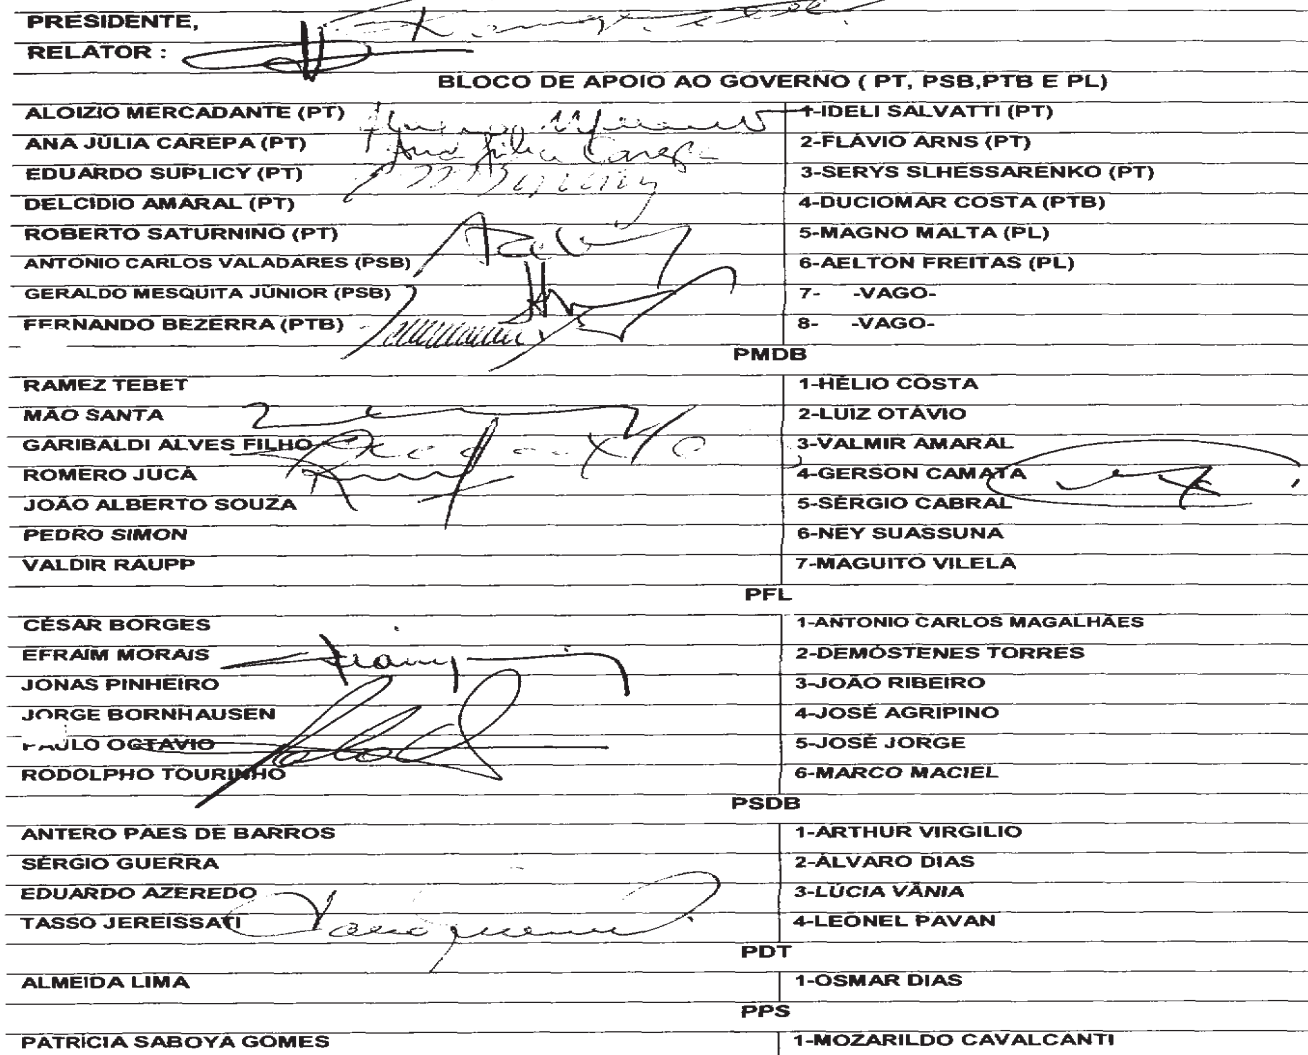 PRESIDENTE,
RELATOR :
BLOCO DE APOIO AO GOVERNO ( PT, PSB,PTB E PL)
ALOIZIO MERCADANTE (PT) 1-IDELI SALVATTI (PT)
ANA JÚLIA CAREPA (PT) Ana Júlia Carepa 2-FLÁVIO ARNS (PT)
EDUARDO SUPLICY (PT) 3-SERYS SLHESSARENKO (PT)
DELCÍDIO AMARAL (PT) 4-DUCIOMAR COSTA (PTB)
ROBERTO SATURNINO (PT) 5-MAGNO MALTA (PL)
ANTONIO CARLOS VALADARES (PSB) 6-AELTON FREITAS (PL)
GERALDO MESQUITA JÚNIOR (PSB) 7- -VAGO-
FERNANDO BEZERRA (PTB) 8- -VAGO-
PMDB
RAMEZ TEBET 1-HÉLIO COSTA
MÃO SANTA 2-LUIZ OTÁVIO
GARIBALDI ALVES FILHO 3-VALMIR AMARAL
ROMERO JUCÁ 4-GERSON CAMATA
JOÃO ALBERTO SOUZA 5-SÉRGIO CABRAL
PEDRO SIMON 6-NEY SUASSUNA
VALDIR RAUPP 7-MAGUITO VILELA
PFL
CÉSAR BORGES 1-ANTONIO CARLOS MAGALHÃES
EFRAIM MORAIS 2-DEMÓSTENES TORRES
JONAS PINHEIRO 3-JOÃO RIBEIRO
JORGE BORNHAUSEN 4-JOSÉ AGRIPINO
PAULO OCTAVIO 5-JOSÉ JORGE
RODOLPHO TOURINHO 6-MARCO MACIEL
PSDB
ANTERO PAES DE BARROS 1-ARTHUR VIRGILIO
SÉRGIO GUERRA 2-ÁLVARO DIAS
EDUARDO AZEREDO 3-LÚCIA VÂNIA
TASSO JEREISSATI 4-LEONEL PAVAN
PDT
ALMEIDA LIMA 1-OSMAR DIAS
PPS
PATRÍCIA SABOYA GOMES 1-MOZARILDO CAVALCANTI